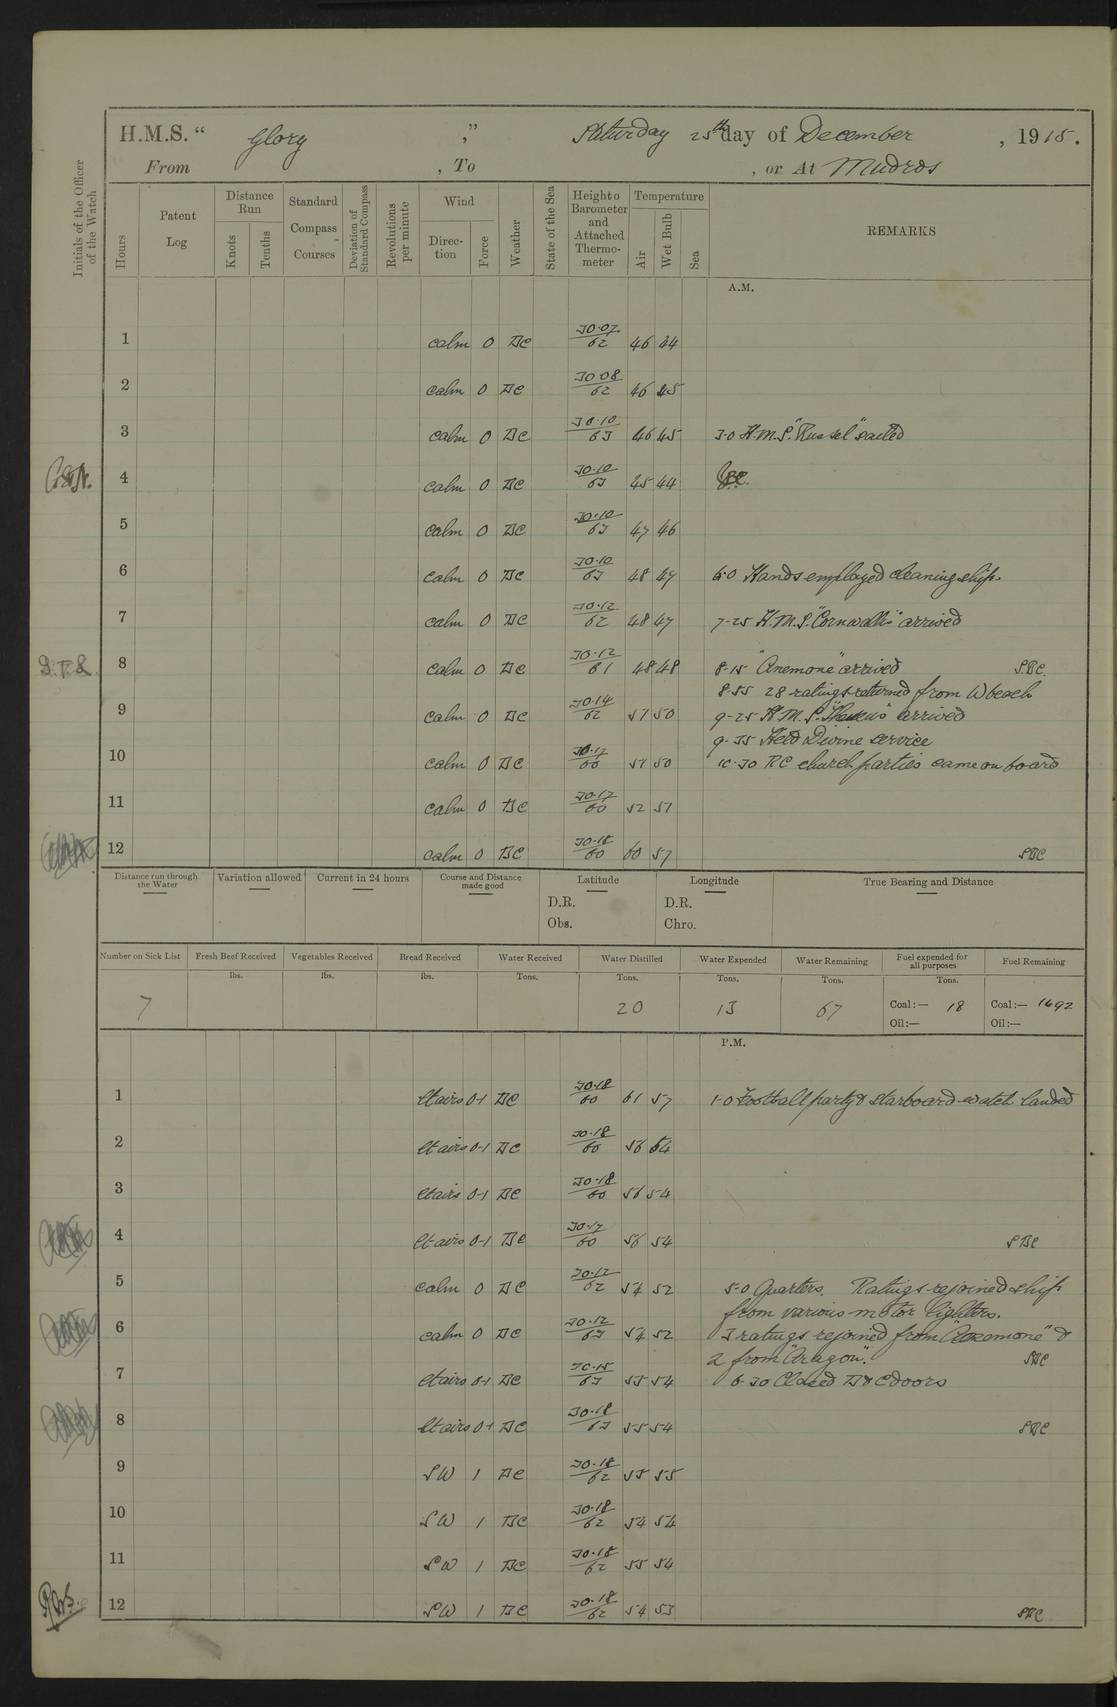 H.M.S. “ Glory , ” Saturday 25th day of December , 1915.
From , To , or At Mudros
Initials of the Officer of the Watch
Hours
Patent Log
Distance Run
Knots
Tenths
Standard Compass Courses
Deviation of Standard Compass
Revolutions per minute
Wind
Direc-tion
Force
Weather
State of the Sea
Height of Barometer and Attached Thermo-meter
Temperature
Air
Wet Bulb
Sea
REMARKS
A.M.
1 calm 0 BC 30.07/62 46 44
2 calm 0 BC 30.08/62 46 45
3 calm 0 BC 30.10/63 46 45 3.0 H.M.S. "Russel" sailed
4 calm 0 BC 30.10/63 45 44
5 calm 0 BC 30.10/63 47 46
6 calm 0 BC 30.10/63 48 47 6.0 Hands employed cleaning ship.
7 calm 0 BC 30.12/62 48 47 7-25 H.M.S. "Cornwallis" arrived
D.T.S. 8 calm 0 BC 30.12/61 48 48 8-15 "Anemone" arrived SBC
8-55 28 ratings returned from W beach
9 calm 0 BC 30.14/62 57 50 9-25 H.M.S. "Theseus" arrived
9-35 Held Divine service
10 calm 0 BC 30.17/60 57 50 10-30 RC church parties came on board
11 calm 0 BC 30.17/60 52 51
12 calm 0 BC 30.18/60 60 57 SBC
Distance run through the Water
Variation allowed
Current in 24 hours
Course and Distance made good
Latitude
D.R.
Obs.
Longitude
D.R.
Chro.
True Bearing and Distance
Number on Sick List
Fresh Beef Received
Vegetables Received
Bread Received
Water Received
Water Distilled
Water Expended
Water Remaining
Fuel expended for all purposes
Fuel Remaining
lbs. lbs. lbs. Tons. Tons. Tons. Tons. Tons.
7 20 13 67 Coal:— 18 Coal:— 1692
Oil:— Oil:—
P.M.
1 lt airs 0-1 BC 30.18/60 61 57 1-0 Football party & starboard watch landed
2 lt airs 0-1 BC 30.18/60 56 54
3 lt airs 0-1 BC 30.18/60 56 54
4 lt airs 0-1 BC 30.17/60 56 54 SBC
5 calm 0 BC 30.12/62 54 52 5-0 Quarters. Ratings rejoined ship
from various motor lighters.
6 calm 0 BC 30.12/63 54 52 3 ratings rejoined from "Anemone" &
2 from "Aragon". SBC
7 lt airs 0-1 BC 30.15/63 55 54 6-30 Closed B & C doors
8 lt airs 0-1 BC 30.18/63 55 54 SBC
9 SW 1 BC 30.18/62 55 55
10 SW 1 BC 30.18/62 54 54
11 SW 1 BC 30.18/62 55 54
12 SW 1 BC 30.18/62 54 53 SBC